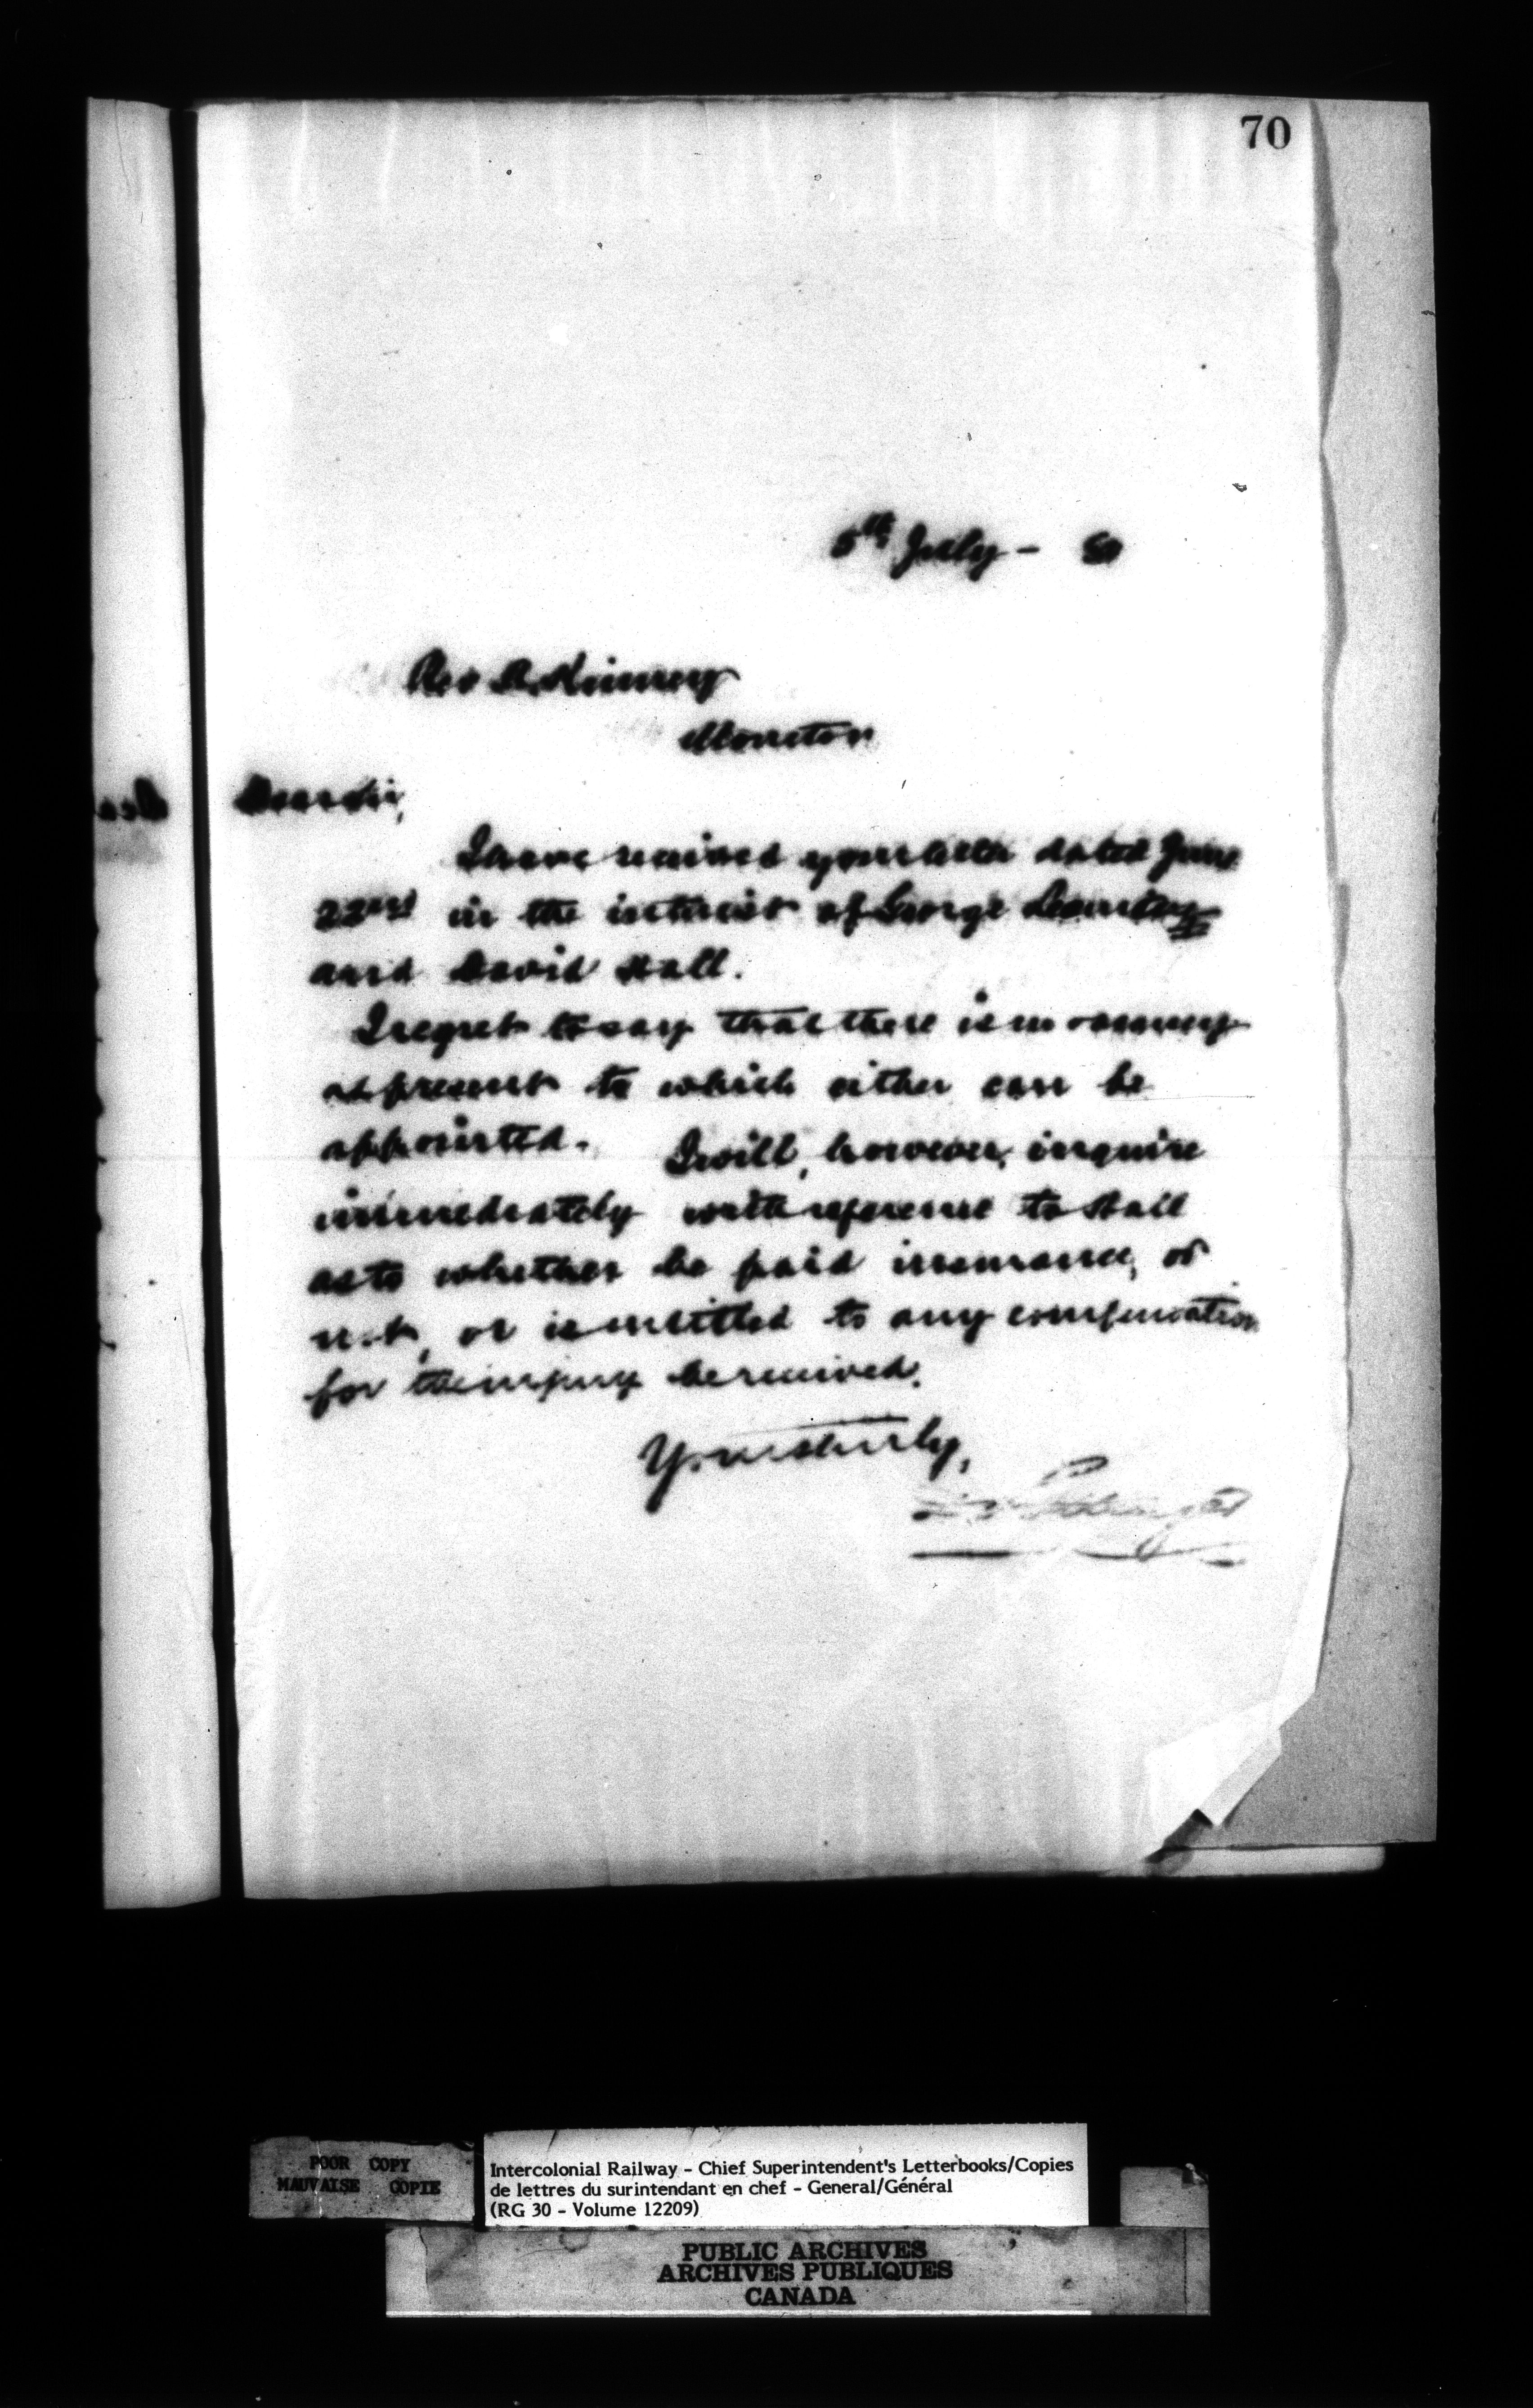 70
5th July -
Rev Kinney
Moncton
Dear Sir,
I have received your letter dated June
22nd in the interest of George
and David Hall.
I regret to say that there is no vacancy
at present to which either can be
appointed. I will, however, inquire
immediately with reference to Hall
as to whether he paid insurance, or
not, or is entitled to any compensation
for the injury he received.
Yours truly,
D. Pottinger
POOR COPY
MAUVAISE COPIE
Intercolonial Railway - Chief Superintendent's Letterbooks/Copies
de lettres du surintendant en chef - General/Général
(RG 30 - Volume 12209)
PUBLIC ARCHIVES
ARCHIVES PUBLIQUES
CANADA